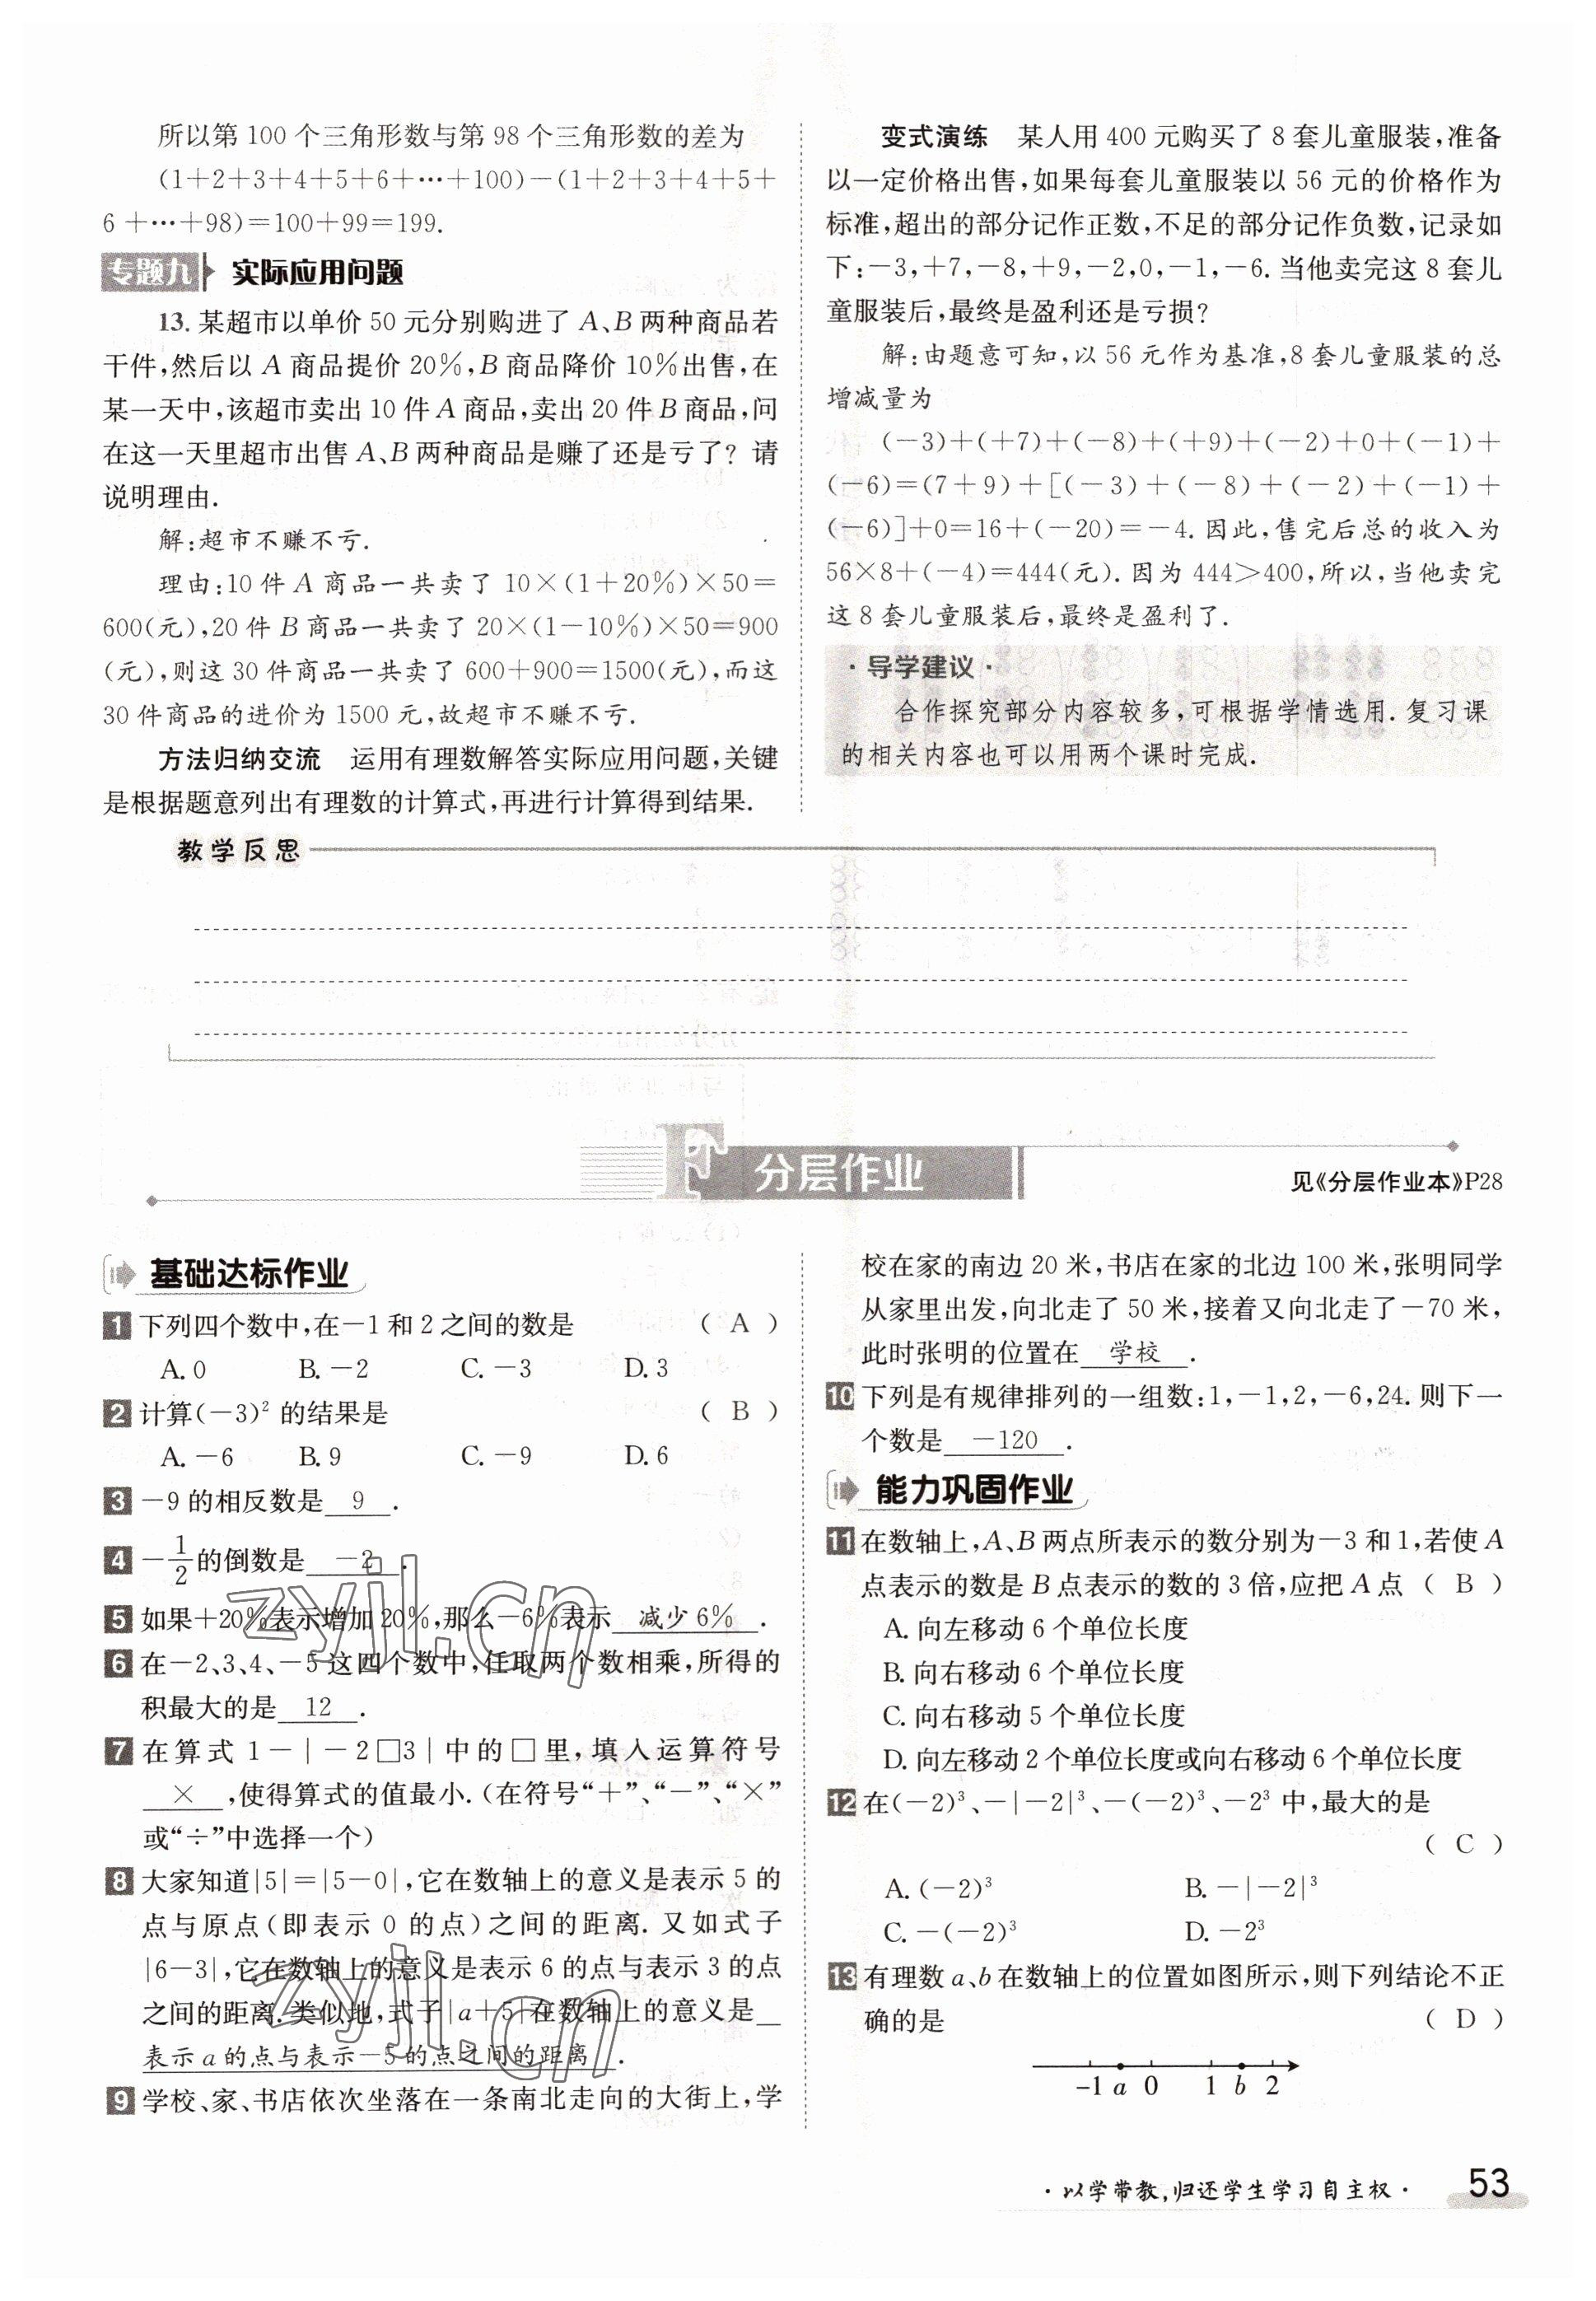 所以第 100 个三角形数与第 98 个三角形数的差为
(1+2+3+4+5+6+…+100)-(1+2+3+4+5+
6+…+98)=100+99=199.
专题九 实际应用问题
13. 某超市以单价 50 元分别购进了 A、B 两种商品若
干件,然后以 A 商品提价 20%,B 商品降价 10%出售,在
某一天中,该超市卖出 10 件 A 商品,卖出 20 件 B 商品,问
在这一天里超市出售 A、B 两种商品是赚了还是亏了? 请
说明理由.
解:超市不赚不亏.
理由:10 件 A 商品一共卖了 10×(1+20%)×50=
600(元),20 件 B 商品一共卖了 20×(1-10%)×50=900
(元),则这 30 件商品一共卖了 600+900=1500(元),而这
30 件商品的进价为 1500 元,故超市不赚不亏.
方法归纳交流 运用有理数解答实际应用问题,关键
是根据题意列出有理数的计算式,再进行计算得到结果.
变式演练 某人用 400 元购买了 8 套儿童服装,准备
以一定价格出售,如果每套儿童服装以 56 元的价格作为
标准,超出的部分记作正数,不足的部分记作负数,记录如
下:-3,+7,-8,+9,-2,0,-1,-6. 当他卖完这 8 套儿
童服装后,最终是盈利还是亏损?
解:由题意可知,以 56 元作为基准,8 套儿童服装的总
增减量为
(-3)+(+7)+(-8)+(+9)+(-2)+0+(-1)+
(-6)=(7+9)+[(-3)+(-8)+(-2)+(-1)+
(-6)]+0=16+(-20)=-4. 因此,售完后总的收入为
56×8+(-4)=444(元). 因为 444>400,所以,当他卖完
这 8 套儿童服装后,最终是盈利了.
· 导学建议 ·
合作探究部分内容较多,可根据学情选用. 复习课
的相关内容也可以用两个课时完成.
教学反思
F 分层作业
见《分层作业本》P28
基础达标作业
1 下列四个数中,在-1 和 2 之间的数是 ( A )
A. 0 B. -2 C. -3 D. 3
2 计算(-3)² 的结果是 ( B )
A. -6 B. 9 C. -9 D. 6
3 -9 的相反数是 9 .
4 -1/2 的倒数是 -2 .
5 如果+20%表示增加 20%,那么-6%表示 减少 6% .
6 在-2、3、4、-5 这四个数中,任取两个数相乘,所得的
积最大的是 12 .
7 在算式 1-|-2□3|中的□里,填入运算符号
× ,使得算式的值最小.(在符号“+”、“-”、“×”
或“÷”中选择一个)
8 大家知道|5|=|5-0|,它在数轴上的意义是表示 5 的
点与原点(即表示 0 的点)之间的距离. 又如式子
|6-3|,它在数轴上的意义是表示 6 的点与表示 3 的点
之间的距离. 类似地,式子|a+5|在数轴上的意义是
表示 a 的点与表示-5 的点之间的距离 .
9 学校、家、书店依次坐落在一条南北走向的大街上,学
校在家的南边 20 米,书店在家的北边 100 米,张明同学
从家里出发,向北走了 50 米,接着又向北走了-70 米,
此时张明的位置在 学校 .
10 下列是有规律排列的一组数:1,-1,2,-6,24. 则下一
个数是 -120 .
能力巩固作业
11 在数轴上,A、B 两点所表示的数分别为-3 和 1,若使 A
点表示的数是 B 点表示的数的 3 倍,应把 A 点 ( B )
A. 向左移动 6 个单位长度
B. 向右移动 6 个单位长度
C. 向右移动 5 个单位长度
D. 向左移动 2 个单位长度或向右移动 6 个单位长度
12 在(-2)³、-|-2|³、-(-2)³、-2³ 中,最大的是
( C )
A. (-2)³ B. -|-2|³
C. -(-2)³ D. -2³
13 有理数 a、b 在数轴上的位置如图所示,则下列结论不正
确的是 ( D )
-1 a 0 1 b 2
zyjl.cn
zyjl.cn
· 以学带教,归还学生学习自主权 ·
53